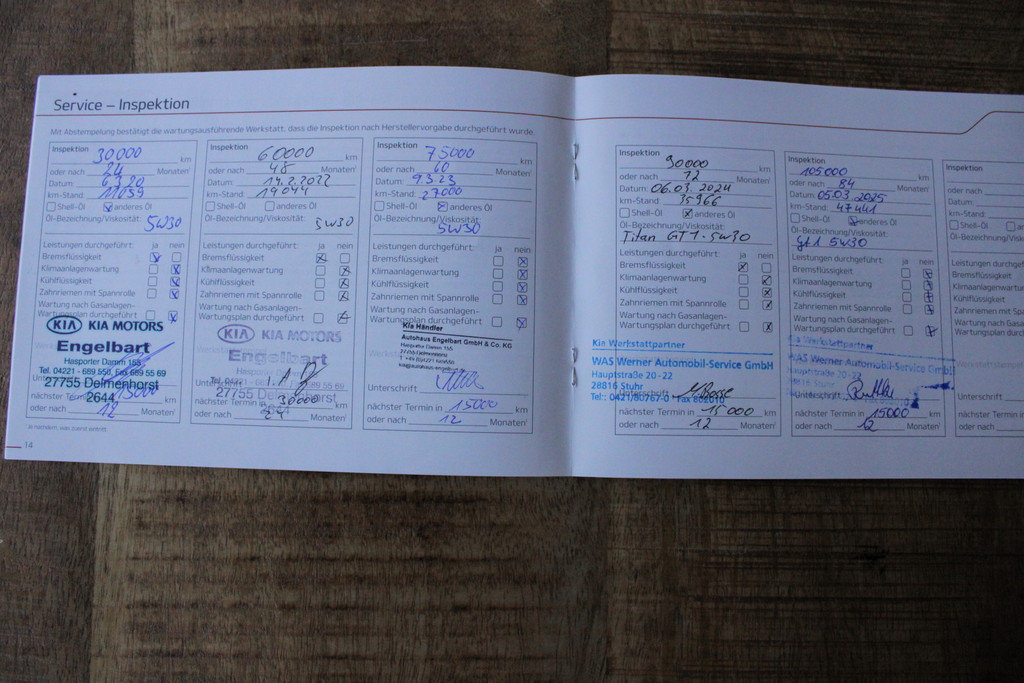 Service – Inspektion
Mit Abstempelung bestätigt die wartungsausführende Werkstatt, dass die Inspektion nach Herstellervorgabe durchgeführt wurde.
Inspektion 30000 km
oder nach 24 Monaten¹
Datum: 6.3.20
km-Stand: 11039
Shell-Öl anderes Öl
Öl-Bezeichnung/Viskosität:
5W30
Leistungen durchgeführt: ja nein
Bremsflüssigkeit
Klimaanlagenwartung
Kühlflüssigkeit
Zahnriemen mit Spannrolle
Wartung nach Gasanlagen-
Wartungsplan durchgeführt
KIA KIA MOTORS
Engelbart
Hasporter Damm 155
Tel. 04221 - 689 550, Fax 689 55 69
27755 Delmenhorst
2644
nächster Termin in 15000 km
oder nach 12 Monaten¹
¹ Je nachdem, was zuerst eintritt.
14
Inspektion 60000 km
oder nach 48 Monaten¹
Datum: 14.2.2022
km-Stand: 19044
Shell-Öl anderes Öl
Öl-Bezeichnung/Viskosität:
5W30
Leistungen durchgeführt: ja nein
Bremsflüssigkeit
Klimaanlagenwartung
Kühlflüssigkeit
Zahnriemen mit Spannrolle
Wartung nach Gasanlagen-
Wartungsplan durchgeführt
KIA KIA MOTORS
Engelbart
Hasporter Damm 155
27755 Delmenhorst
2644
nächster Termin in 30000 km
oder nach Monaten¹
Inspektion 75000 km
oder nach 60 Monaten¹
Datum: 9.3.23
km-Stand: 27000
Shell-Öl anderes Öl
Öl-Bezeichnung/Viskosität:
5W30
Leistungen durchgeführt: ja nein
Bremsflüssigkeit
Klimaanlagenwartung
Kühlflüssigkeit
Zahnriemen mit Spannrolle
Wartung nach Gasanlagen-
Wartungsplan durchgeführt
Kia Händler
Autohaus Engelbart GmbH & Co. KG
Hasporter Damm 155
27755 Delmenhorst
Unterschrift
nächster Termin in 15000 km
oder nach 12 Monaten¹
Inspektion 90000 km
oder nach 72 Monaten¹
Datum: 06.03.2024
km-Stand: 35966
Shell-Öl anderes Öl
Öl-Bezeichnung/Viskosität:
Titan GT1 - 5W30
Leistungen durchgeführt: ja nein
Bremsflüssigkeit
Klimaanlagenwartung
Kühlflüssigkeit
Zahnriemen mit Spannrolle
Wartung nach Gasanlagen-
Wartungsplan durchgeführt
Kia Werkstattpartner
WAS Werner Automobil-Service GmbH
Hauptstraße 20 - 22
28816 Stuhr
Tel.: 0421/80767-0 · Fax 802010
Unterschrift
nächster Termin in 15000 km
oder nach 12 Monaten¹
Inspektion 105000 km
oder nach 84 Monaten¹
Datum: 05.03.2025
km-Stand: 47441
Shell-Öl anderes Öl
Öl-Bezeichnung/Viskosität:
Gt1 5W30
Leistungen durchgeführt: ja nein
Bremsflüssigkeit
Klimaanlagenwartung
Kühlflüssigkeit
Zahnriemen mit Spannrolle
Wartung nach Gasanlagen-
Wartungsplan durchgeführt
Kia Werkstattpartner
WAS Werner Automobil-Service GmbH
Hauptstraße 20 - 22
28816 Stuhr
Unterschrift
nächster Termin in 15000 km
oder nach 12 Monaten¹
Inspektion
oder nach
Datum:
km-Stand:
Shell-Öl
Öl-Bezeichnung/Viskosi
Leistungen durchgeführt
Bremsflüssigkeit
Klimaanlagenwartung
Kühlflüssigkeit
Zahnriemen mit Spannr
Wartung nach Gasanla
Wartungsplan durchfü
Unterschrift
nächster Termin in
oder nach